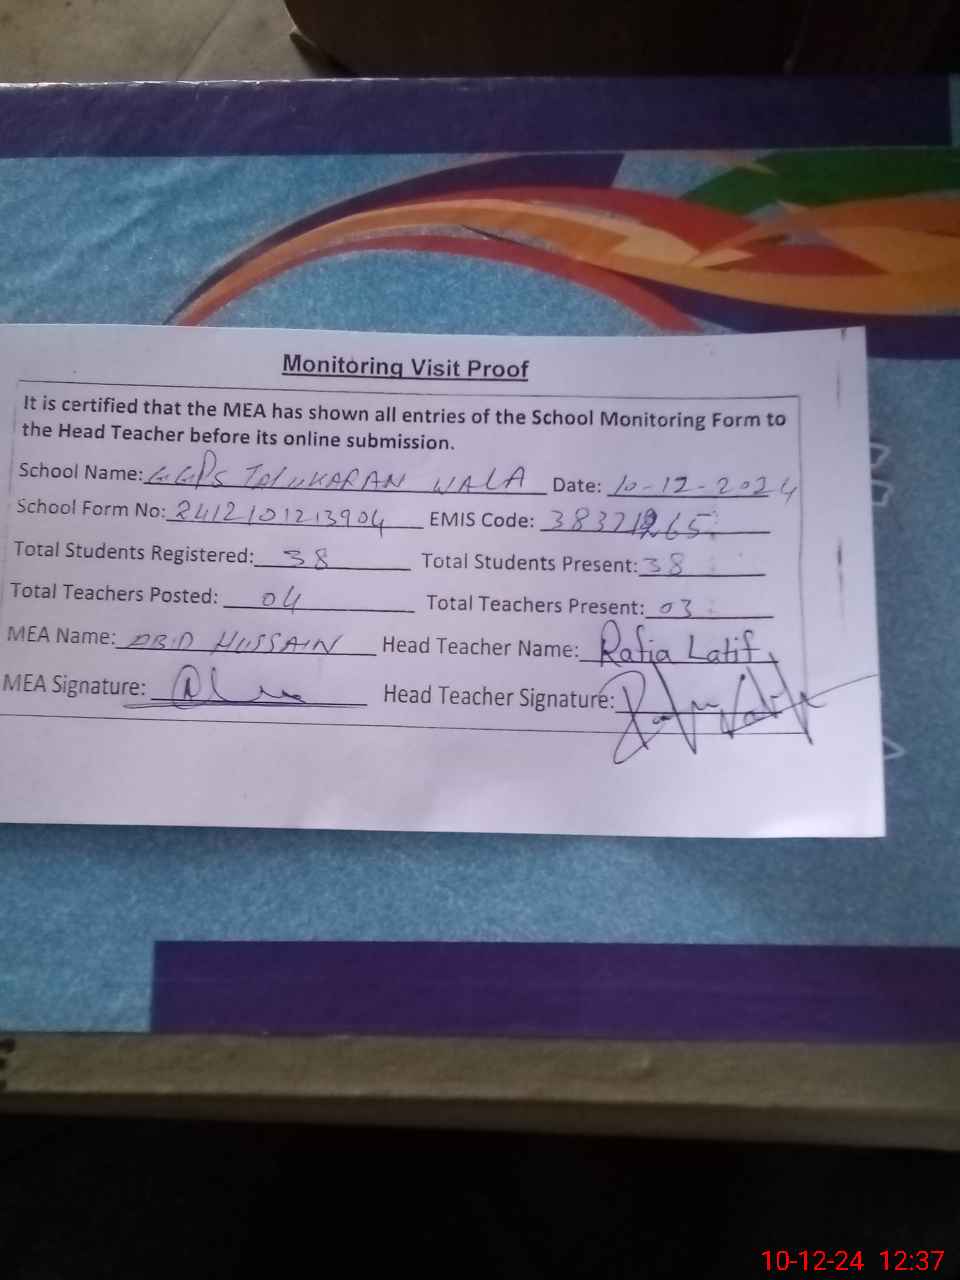 Monitoring Visit Proof
It is certified that the MEA has shown all entries of the School Monitoring Form to
the Head Teacher before its online submission.
School Name: GGPS WALA Date: 10-12-2024
School Form No: 2412101213904 EMIS Code:
Total Students Registered: 38 Total Students Present: 38
Total Teachers Posted: 04 Total Teachers Present: 03
MEA Name: ABID HUSSAIN Head Teacher Name: Rafia Latif
MEA Signature: Head Teacher Signature:
10-12-24 12:37